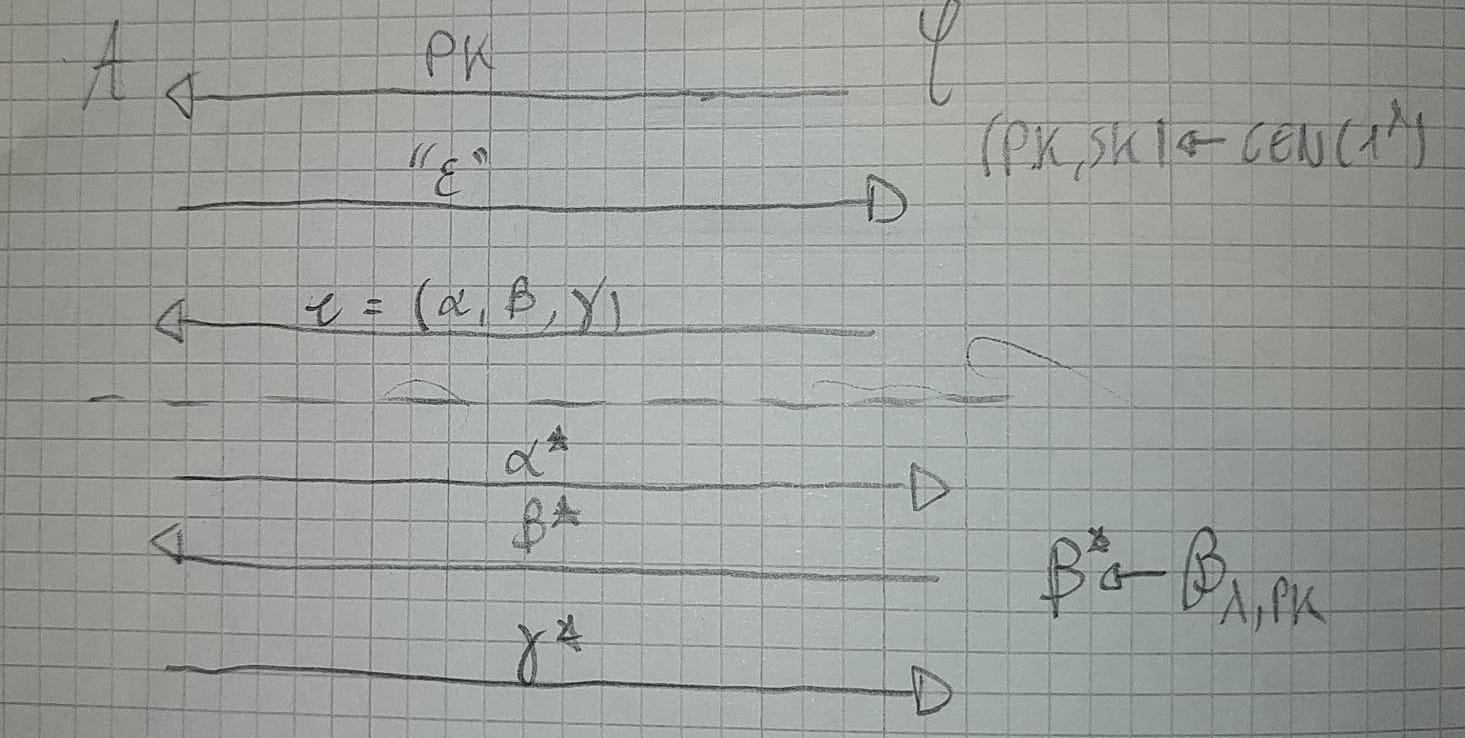 A PK φ
(PK, SK) ← GEN(1^λ)
"ε"
τ = (α, β, γ)
α*
β*
β* ← B_λ,PK
γ*